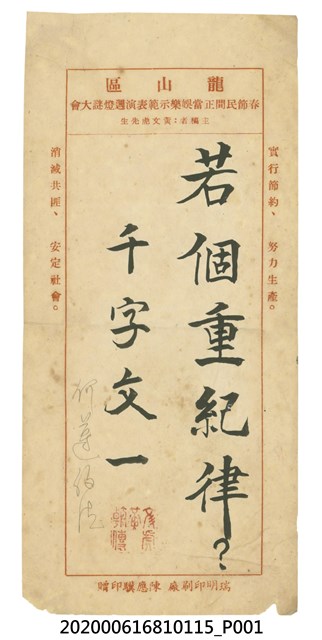 區山龍
會大謎燈週演表範示樂娛當正間民節春
生先虎文黃：名稿主
實行節約、 努力生產。
若個重紀律？
千字文一
消滅共匪、 安定社會。
贈印騏應陳 廠刷印明瑞
202000616810115_P001